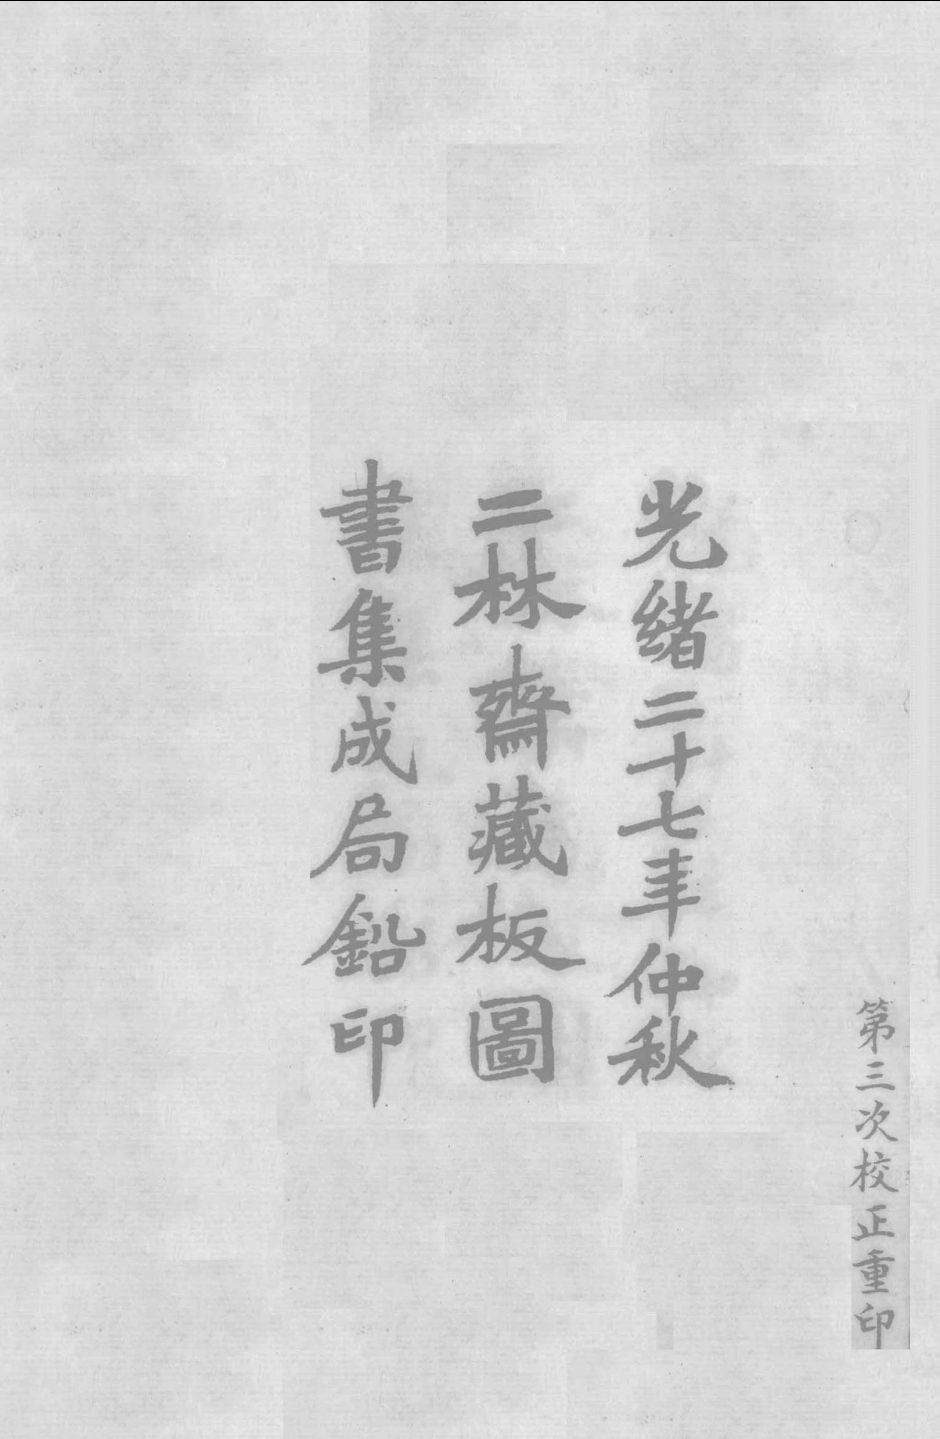 光緒二十七年仲秋
二林齋藏板圖
書集成局鉛印
第三次校正重印